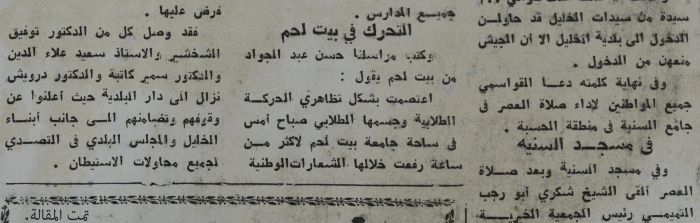 سيدة من سيدات الخليل قد حاولن
الدخول الى بلدية الخليل الا أن الجيش
منعهن من الدخول .
وفي نهاية كلمته دعا القواسمي
جميع المواطنين لاداء صلاة العصر في
جامع السنية في منطقة الحسبة .
في مسجد السنيه
وفي مسجد السنية وبعد صلاة
العصر ألقى الشيخ شكري أبو رجب
التميمي رئيس الجمعية الخيرية
جميع المدارس .
التحرك في بيت لحم
وكتب مراسلنا حسن عبد الجواد
من بيت لحم يقول :
اعتصمت بشكل تظاهري الحركة
الطلابية وجسمها الطلابي صباح أمس
في ساحة جامعة بيت لحم لاكثر من
ساعة رفعت خلالها الشعارات الوطنية
فرض عليها .
فقد وصل كل من الدكتور توفيق
الشخشير والاستاذ سعيد علاء الدين
والدكتور سمير كاتبة والدكتور درويش
نزال الى دار البلدية حيث أعلنوا عن
وقوفهم وتضامنهم الى جانب أبناء
الخليل والمجلس البلدي في التصدي
لجميع محاولات الاستيطان .
تمت المقالة.